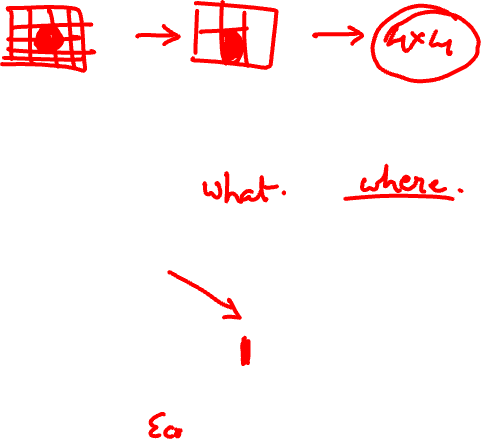 4×4
what. where.